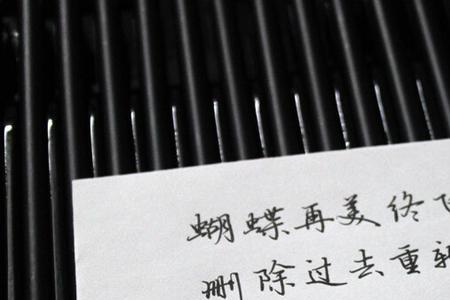 蝴蝶再美终
删除过去重